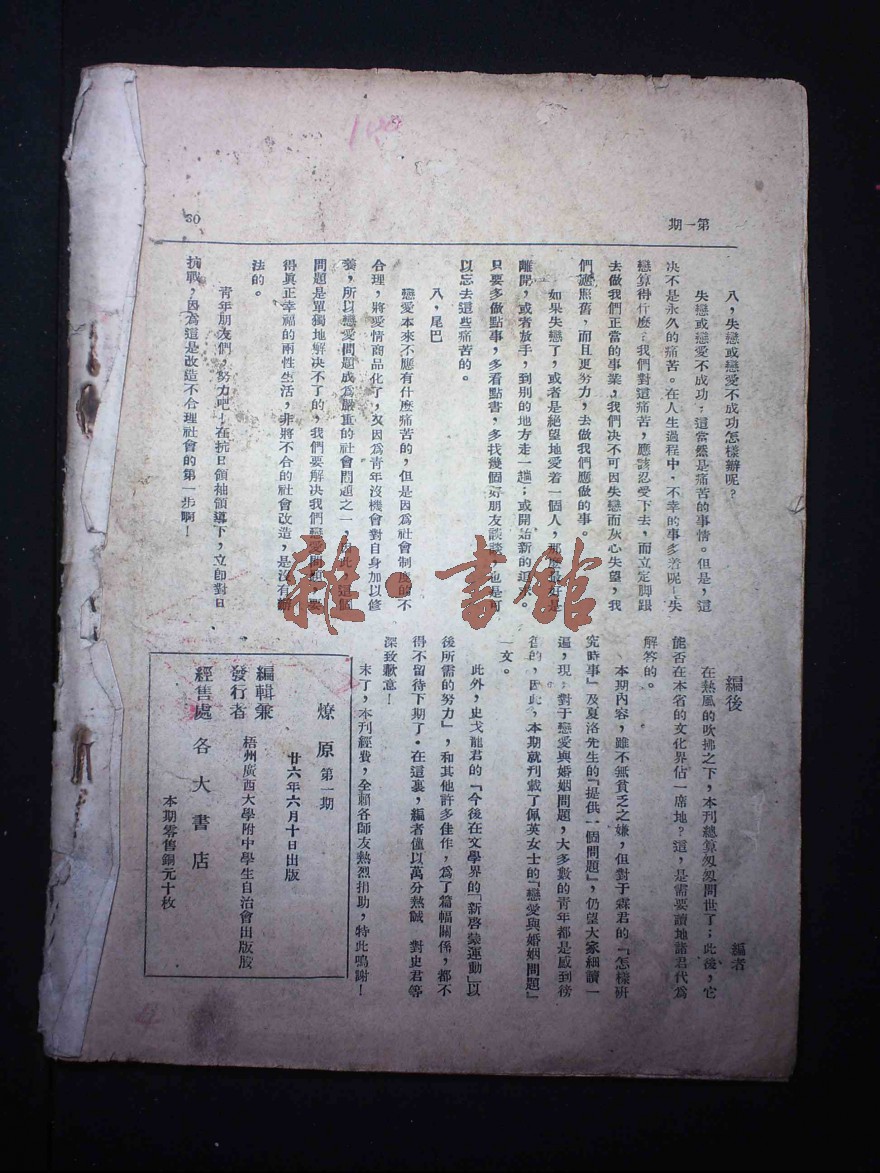 第一期
30
八，失戀或戀愛不成功怎樣辦呢？
失戀或戀愛不成功，這當然是痛苦的事情。但是，這
决不是永久的痛苦。在人生過程中，不幸的事多着呢！失
戀算得什麼；我們對這痛苦，應該忍受下去，而立定脚跟
去做我們正當的事業，我們决不可因失戀而灰心失望，我
們應照舊，而且更努力，去做我們應做的事。
如果失戀了，或者是絕望地愛着一個人，那麼最好是
離開，或者放手，到别的地方走一趟；或開始新的追求。
只要多做點事，多看點書，多找幾個好朋友談談，也是可
以忘去這些痛苦的。
八，尾巴
戀愛本來不應有什麼痛苦的，但是因爲社會制度的不
合理，將愛情商品化了，又因爲青年沒機會對自身加以修
養，所以戀愛問題成爲嚴重的社會問題之一，因此，這個
問題是單獨地解决不了的，我們要解决我們戀愛問題，要
得眞正幸福的兩性生活，非將不合的社會改造，是沒有辦
法的。
青年朋友們，努力吧！在抗日領袖領導下，立卽對日
抗戰，因爲這是改造不合理社會的第一步啊！
編後
編者
在熱風的吹拂之下，本刊總算匆匆問世了；此後，它
能否在本省的文化界佔一席地？這，是需要讀地諸君代爲
解答的。
本期内容，雖不無貧乏之嫌，但對于霖君的『怎樣研
究時事』及夏洛先生的『提供一個問題』，仍望大家細讀一
遍，現；對于戀愛與婚姻問題，大多數的青年都是感到徬
徨的，因此，本期就刊載了佩英女士的『戀愛與婚姻問題』
一文。
此外，史戈龍君的『今後在文學界的「新啓蒙運動」以
後所需的努力』，和其他許多佳作，爲了篇幅關係，都不
得不留待下期了。在這裏，編者僅以萬分熱誠 對史君等
深致歉意！
末了，本刊經費，全賴各師友熱烈捐助，特此鳴謝！
燎原 第一期
廿六年六月十日出版
編輯兼
發行者 梧州廣西大學附中學生自治會出版股
經售處 各大書店
本期零售銅元十枚
雜·書館